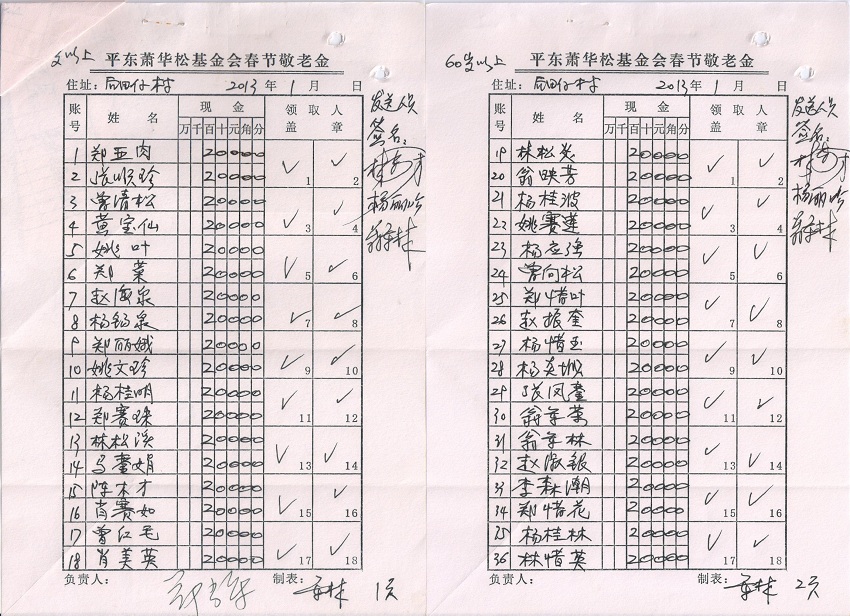 岁以上 平东萧华松基金会春节敬老金
住址：后田仔村 2013年 1月 日
账号 姓名 现金 领取人盖章
万 千 百 十 元 角 分
1 郑亚肉 20000 ✓ 1 ✓ 2
2 张顺珍 20000
3 曾清松 20000 ✓ 3 ✓ 4
4 黄宝仙 20000
5 姚叶 20000 ✓ 5 ✓ 6
6 郑莱 20000
7 赵海泉 20000 ✓ 7 ✓ 8
8 杨锡泉 20000
9 郑丽娥 20000 ✓ 9 ✓ 10
10 姚文珍 20000
11 杨桂明 20000 ✓ 11 ✓ 12
12 郑赛珠 20000
13 林松溪 20000 ✓ 13 ✓ 14
14 马蕙娟 20000
15 陈木才 20000 ✓ 15 ✓ 16
16 肖赛如 20000
17 曾红毛 20000 ✓ 17 ✓ 18
18 肖美英 20000
负责人： 制表： 1页
发送人员
签名：
杨丽
60岁以上 平东萧华松基金会春节敬老金
住址：后田仔村 2013年 1月 日
账号 姓名 现金 领取人盖章
万 千 百 十 元 角 分
19 林松炎 20000 ✓ 1 ✓ 2
20 翁映芳 20000
21 杨桂波 20000 ✓ 3 ✓ 4
22 姚赛莲 20000
23 杨应强 20000 ✓ 5 ✓ 6
24 曾向松 20000
25 郑惜叶 20000 ✓ 7 ✓ 8
26 赵振奎 20000
27 杨惜玉 20000 ✓ 9 ✓ 10
28 杨炎城 20000
29 张凤銮 20000 ✓ 11 ✓ 12
30 翁军荣 20000
31 翁军林 20000 ✓ 13 ✓ 14
32 赵淑银 20000
33 李森潮 20000 ✓ 15 ✓ 16
34 郑惜花 20000
35 杨桂林 20000 ✓ 17 ✓ 18
36 林惜英 20000
负责人： 制表： 2页
发送人员
签名：
杨丽